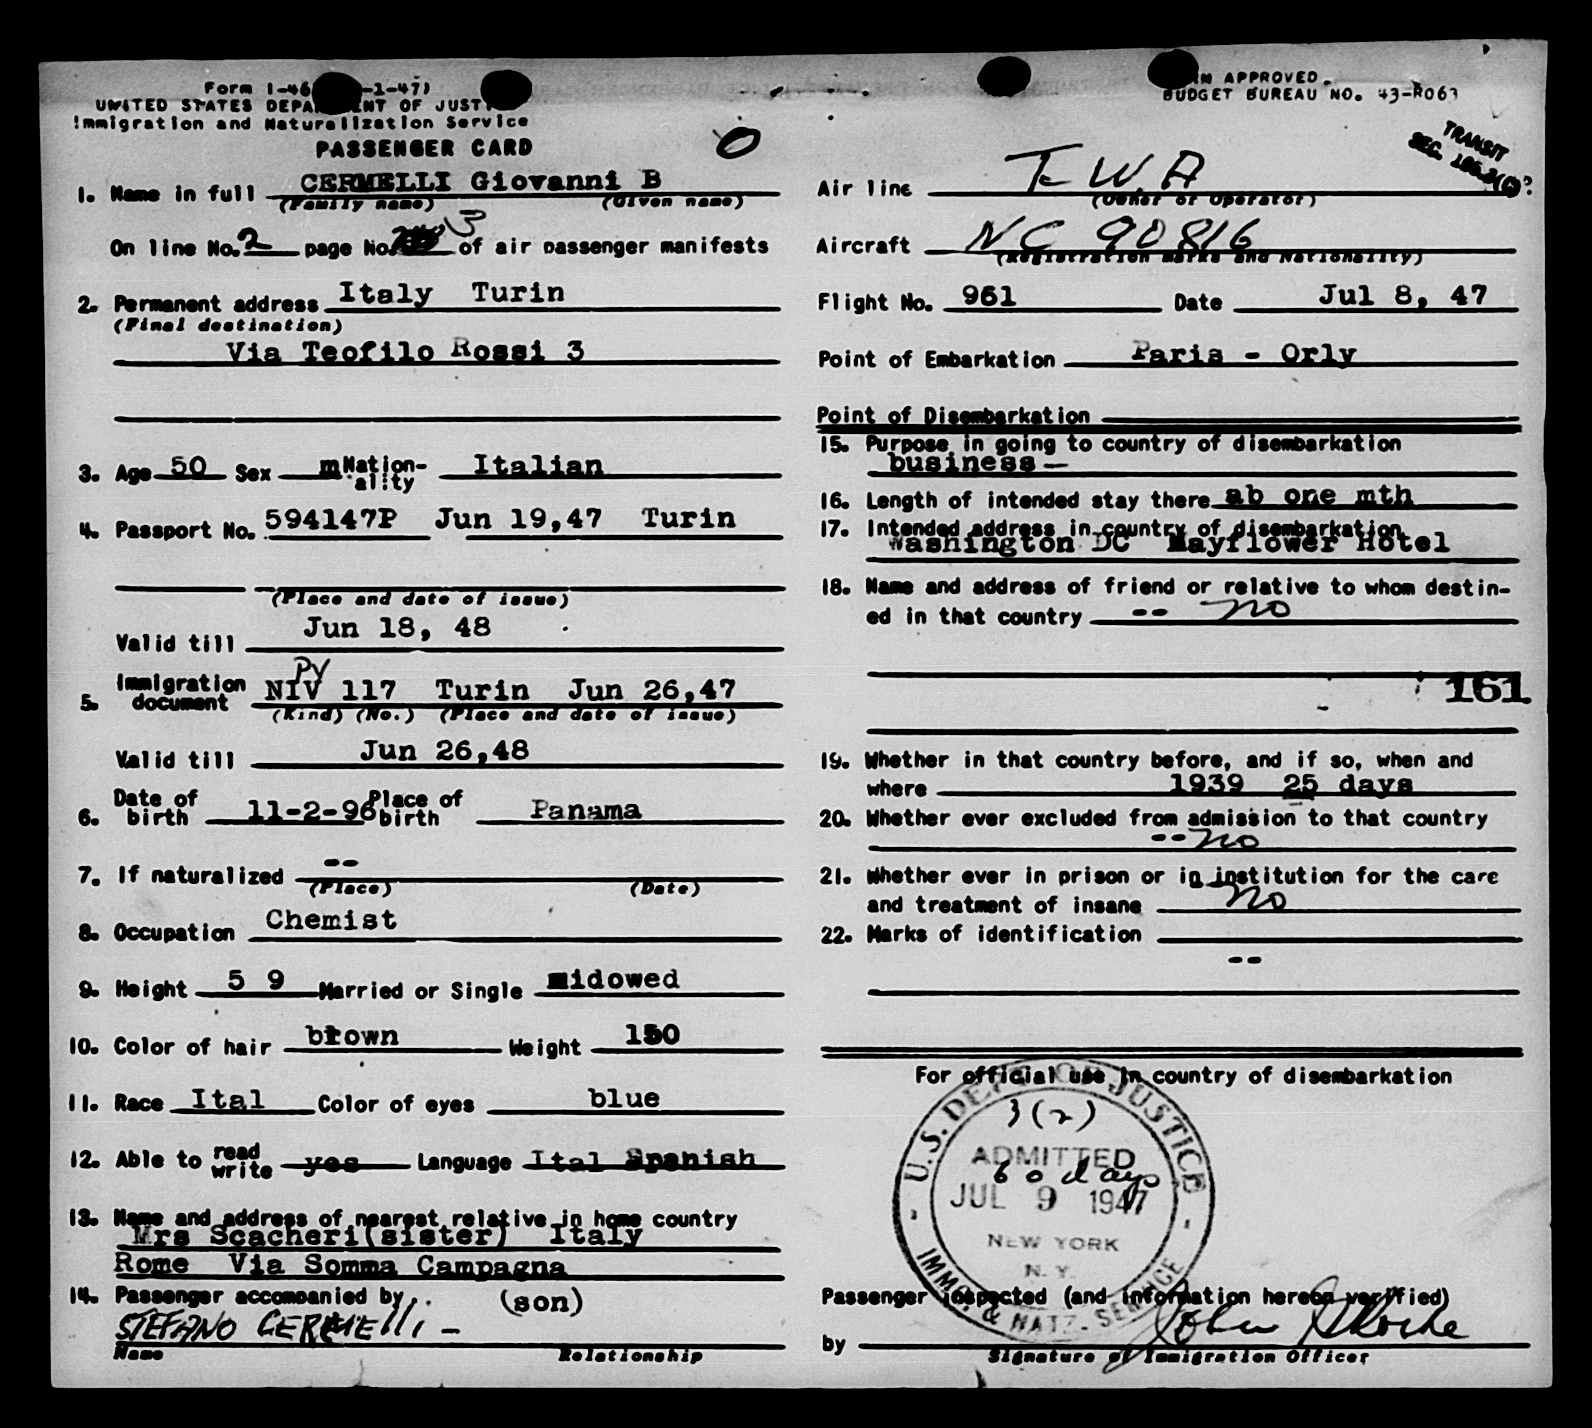 Form I-46 -1-47)
UNITED STATES DEPARTMENT OF JUST
Immigration and Naturalization Service
PASSENGER CARD
1. Name in full CERMELLI Giovanni B
(Family name) (Given name)
On line No. 2 page No. 3 of air passenger manifests
2. Permanent address Italy Turin
(Final destination)
Via Teofilo Rossi 3
3. Age 50 Sex m Nationality Italian
4. Passport No. 594147P Jun 19,47 Turin
(Place and date of issue)
Valid till Jun 18, 48
PV
5. Immigration document NIV 117 Turin Jun 26,47
(Kind) (No.) (Place and date of issue)
Valid till Jun 26,48
6. Date of birth 11-2-96 Place of birth Panama
7. If naturalized --
(Place) (Date)
8. Occupation Chemist
9. Height 5 9 Married or Single widowed
10. Color of hair brown Weight 150
11. Race Ital Color of eyes blue
12. Able to read write yes Language Ital Spanish
13. Name and address of nearest relative in home country
Mrs Scacheri(sister) Italy
Rome Via Somma Campagna
14. Passenger accompanied by (son)
STEFANO CERMELLI -
Name Relationship
O
FORM APPROVED.
BUDGET BUREAU NO. 43-R063
TRANSIT
SEC.
Air line T.W.A
(Owner or Operator)
Aircraft NC 90816
(Registration marks and Nationality)
Flight No. 961 Date Jul 8, 47
Point of Embarkation Paris - Orly
Point of Disembarkation
15. Purpose in going to country of disembarkation
business-
16. Length of intended stay there ab one mth
17. Intended address in country of disembarkation
Washington DC Mayflower Hotel
18. Name and address of friend or relative to whom destin-
ed in that country -- no
161
19. Whether in that country before, and if so, when and
where 1939 25 days
20. Whether ever excluded from admission to that country
-- no
21. Whether ever in prison or in institution for the care
and treatment of insane no
22. Marks of identification
--
For official use in country of disembarkation
U.S. DEPT. OF JUSTICE
3(2)
ADMITTED
60 days
JUL 9 1947
NEW YORK
N. Y.
IMMIG. & NATZ. SERVICE
Passenger inspected (and information hereon verified)
by John
Signature of Immigration Officer